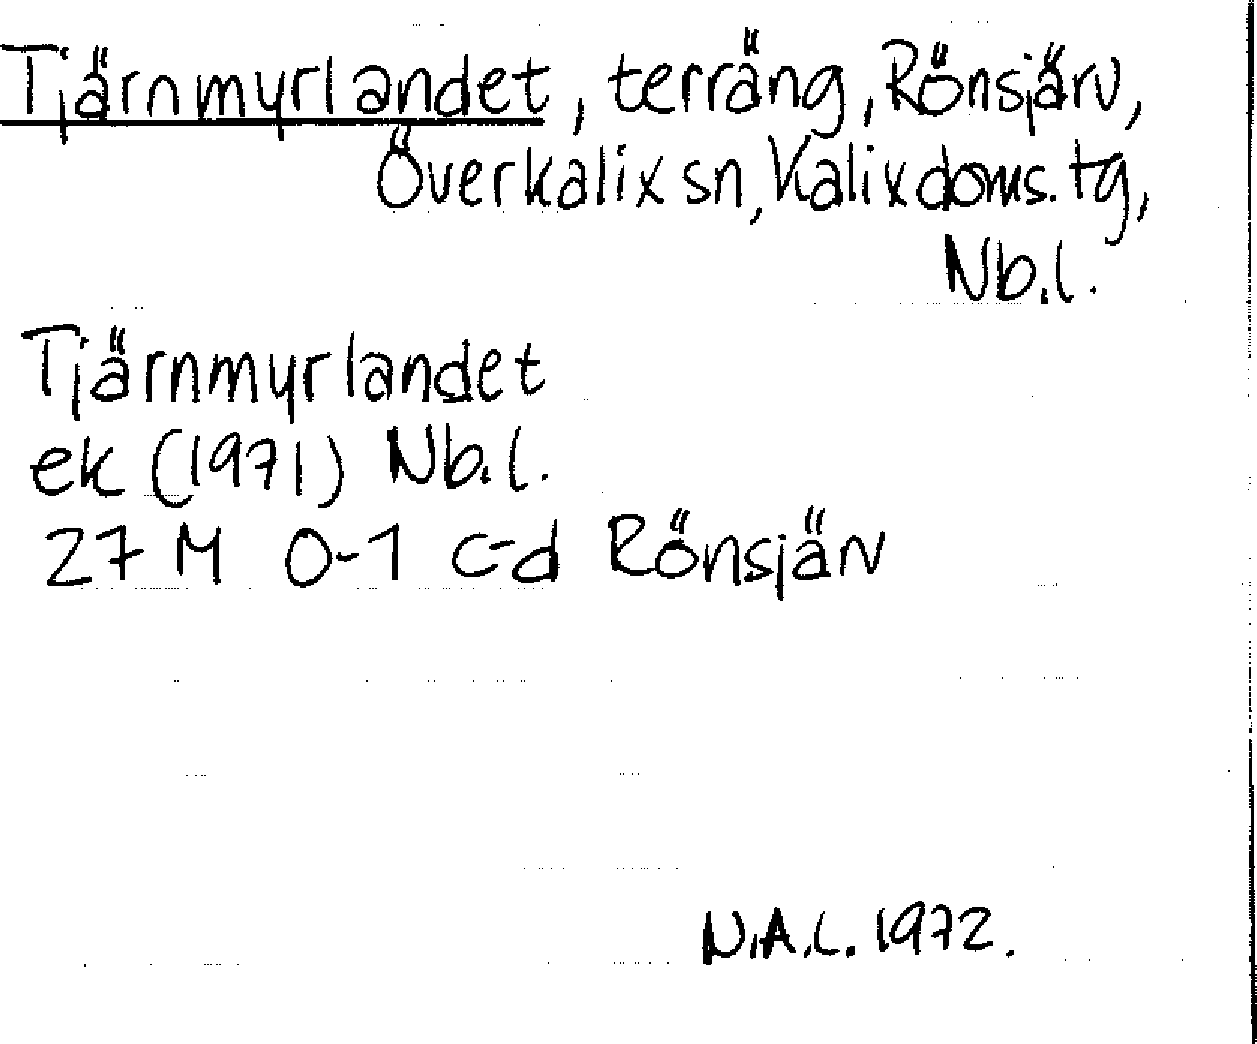 Tjärnmyrlandet, terräng, Rönsjärv,
Överkalix sn, Kalix doms. tg,
Nb.l.
Tjärnmyrlandet
ek (1971) Nb.l.
27 M 0-1 c-d Rönsjärv
N.A.L. 1972.